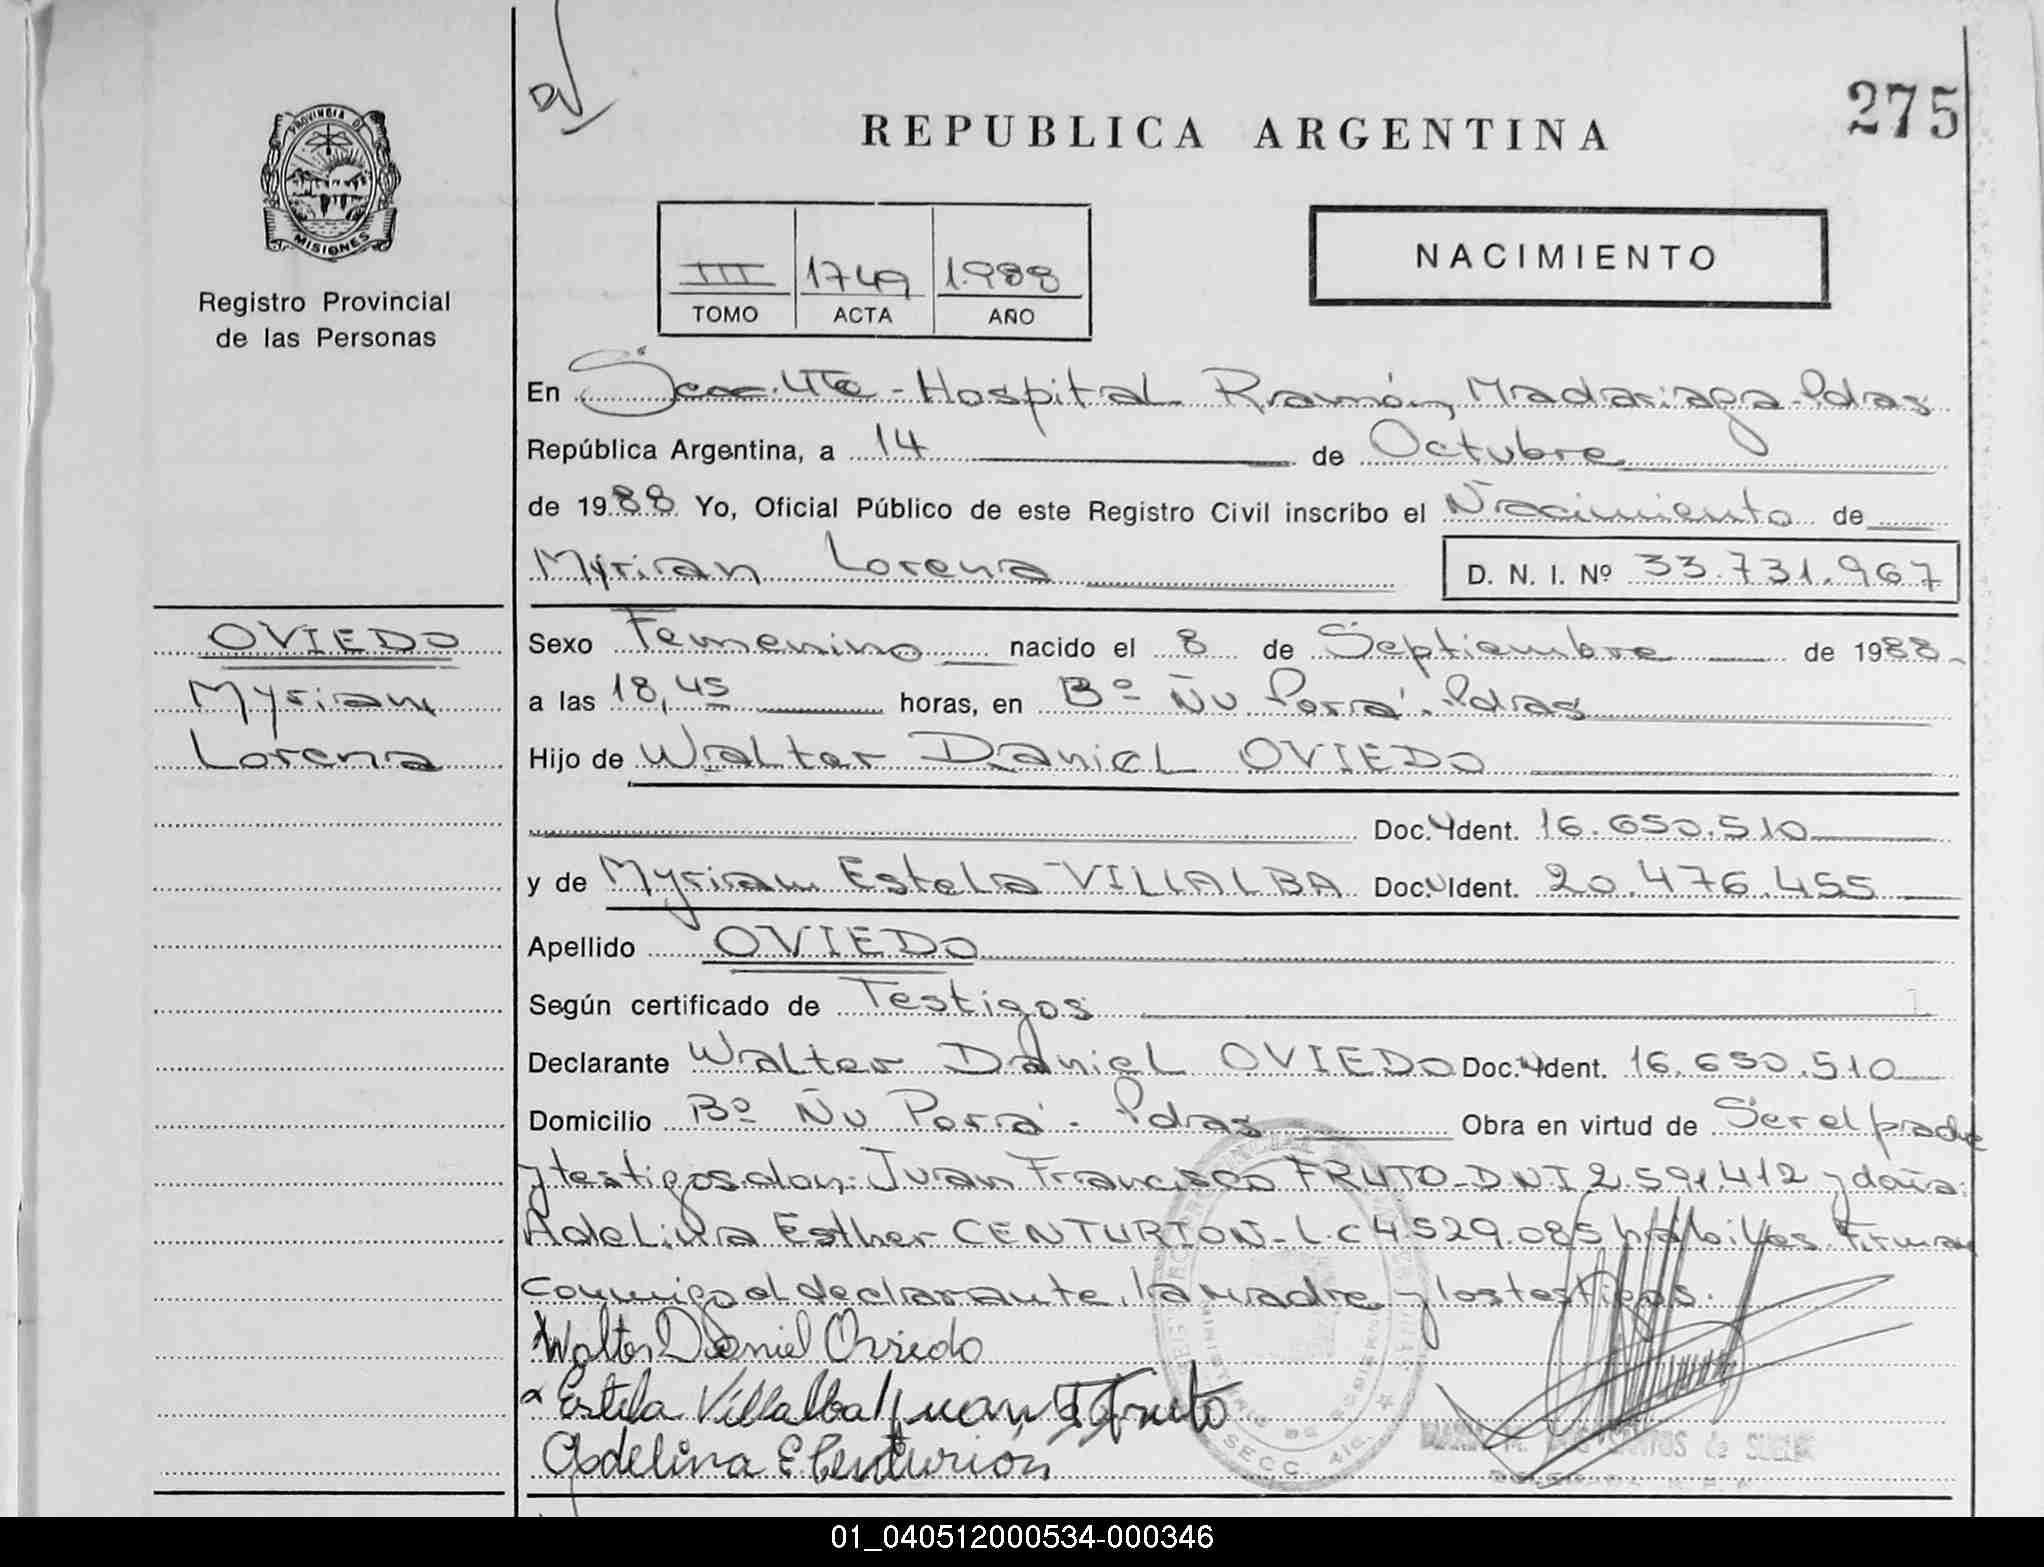 275
REPUBLICA ARGENTINA
PROVINCIA DE
MISIONES
Registro Provincial
de las Personas
III 1749 1.988
TOMO ACTA AÑO
NACIMIENTO
En Secc. 4ta - Hospital Ramón Madariaga - Pdas
República Argentina, a 14 de Octubre
de 1988 Yo, Oficial Público de este Registro Civil inscribo el Nacimiento de
Myrian Lorena
D. N. I. Nº 33.731.967
OVIEDO
Myrian
Lorena
Sexo Femenino nacido el 8 de Septiembre de 1988
a las 18,45 horas, en Bº Ñu Porá. Pdas
Hijo de Walter Daniel OVIEDO
Doc. Ident. 16.650.510
y de Myrian Estela VILLALBA Doc. Ident. 20.476.455
Apellido OVIEDO
Según certificado de Testigos
Declarante Walter Daniel OVIEDO Doc. Ident. 16.650.510
Domicilio Bº Ñu Porá - Pdas Obra en virtud de Ser el padre
y testigos don: Juan Francisco FRUTO - DNI 2.591.412 y doña:
Adelina Esther CENTURION - L.C 4.529.085 hábiles. Firman
conmigo el declarante, la madre y los testigos.
Walter Daniel Oviedo
Estela Villalba Juan F Fruto
Adelina E Centurión
SECC. 4ta.
SANTOS de
01_040512000534-000346